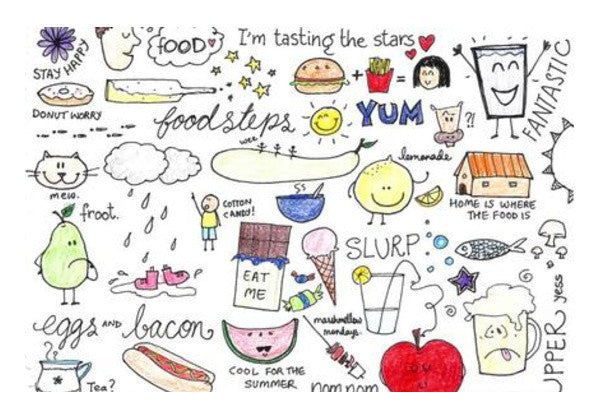 FOOD
I'm tasting the stars
STAY HAPPY
DONUT WORRY
+
=
YUM
?!
FANTASTIC
foodsteps
wee
lemonade
mew.
COTTON
CANDY!
HOME IS WHERE
THE FOOD IS
froot.
EAT
ME
SLURP
yess
UPPER
eggs AND bacon
marshmellow
mondays.
COOL FOR THE
SUMMER
?
Tea?
nom nom